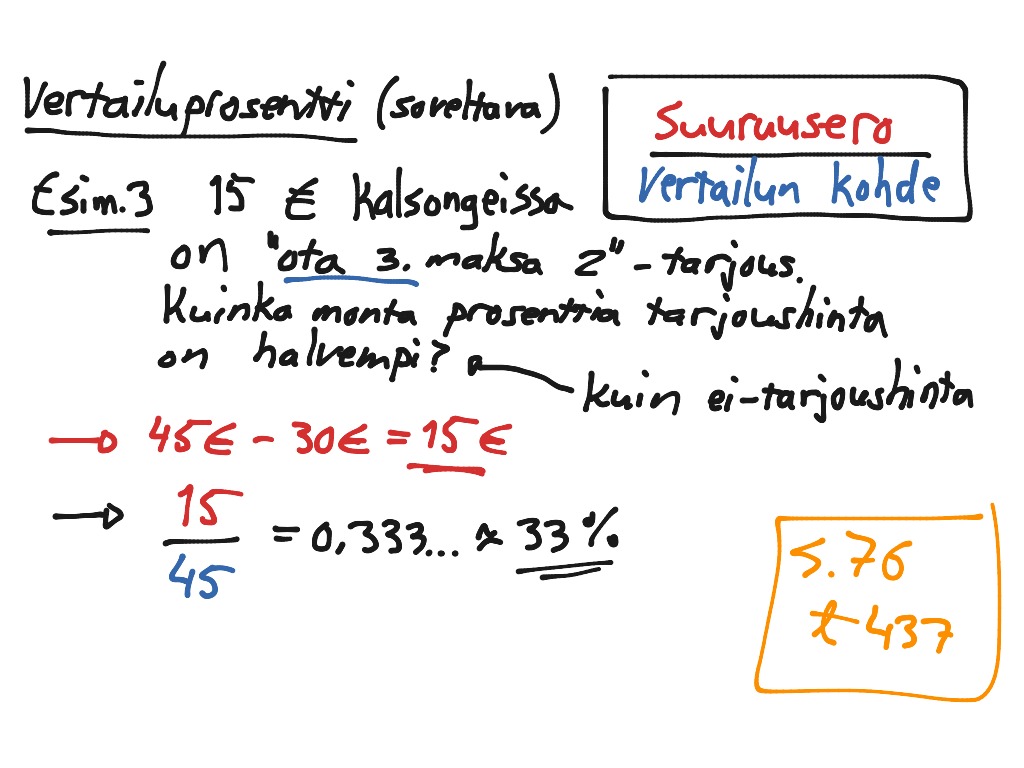 Vertailuprosentti (soveltava)
Suuruusero
Vertailun kohde
Esim.3 15 € kalsongeissa
on "ota 3. maksa 2" -tarjous.
Kuinka monta prosenttia tarjoushinta
on halvempi?
kuin ei-tarjoushinta
→ 45€ - 30€ = 15€
→ 15/45 = 0,333... ≈ 33%
s.76
t 437